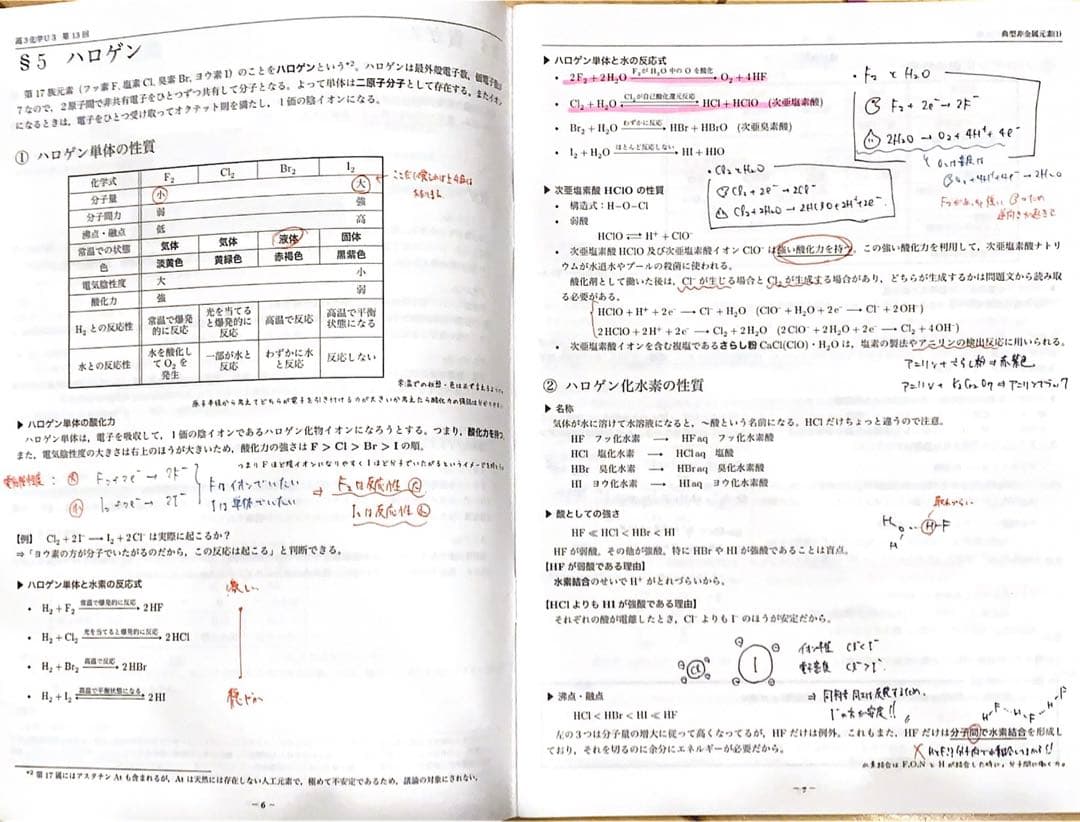 高3化学U3 第13回
§5 ハロゲン
第17族元素（フッ素F, 塩素Cl, 臭素Br, ヨウ素I）のことをハロゲンという*2。ハロゲンは最外殻電子数, 価電子数が
7なので、2原子間で非共有電子をひとつずつ共有して分子となる。よって単体は二原子分子として存在する。またイオン
になるときは、電子をひとつ受け取ってオクテット則を満たし、1価の陰イオンになる。
① ハロゲン単体の性質
化学式 F₂ Cl₂ Br₂ I₂
分子量 小 大
分子間力 弱 強
沸点・融点 低 高
常温での状態 気体 気体 液体 固体
色 淡黄色 黄緑色 赤褐色 黒紫色
電気陰性度 大 小
酸化力 強 弱
H₂との反応性 常温で爆発的に反応 光を当てると爆発的に反応 高温で反応 高温で平衡状態になる
水との反応性 水を酸化してO₂を発生 一部が水と反応 わずかに水と反応 反応しない
常温での状態・色は必ず覚えるように。
▶ ハロゲン単体の酸化力
ハロゲン単体は、電子を吸収して、1価の陰イオンであるハロゲン化物イオンになろうとする。つまり, 酸化力を持つ。
また、電気陰性度の大きさは右上のほうが大きいため、酸化力の強さは F > Cl > Br > I の順。
つまりFほど陰イオンになりやすくIほど分子でいたがるというイメージを持とう
電気陰性度： 大 F₂+2e⁻ → 2F⁻
小 I₂+2e⁻ → 2I⁻
Fはイオンでいたい
Iは単体でいたい
⇒ F₂は反応性 大
I₂は反応性 小
【例】 Cl₂ + 2I⁻ → I₂ + 2Cl⁻ は実際に起こるか？
⇒「ヨウ素の方が分子でいたがるのだから、この反応は起こる」と判断できる。
▶ ハロゲン単体と水素の反応式
激しい
• H₂ + F₂ 常温で爆発的に反応→ 2HF
• H₂ + Cl₂ 光を当てると爆発的に反応→ 2HCl
• H₂ + Br₂ 高温で反応→ 2HBr
• H₂ + I₂ 高温で平衡状態になる⇄ 2HI
穏やか
*2 第17属にはアスタチンAtも含まれるが、Atは天然には存在しない人工元素で、極めて不安定であるため、議論の対象にされない。
– 6 –
典型非金属元素(1)
▶ ハロゲン単体と水の反応式
• 2F₂ + 2H₂O F₂がH₂O中のOを酸化→ O₂ + 4HF
• Cl₂ + H₂O Cl₂が自己酸化還元反応⇄ HCl + HClO （次亜塩素酸）
• Br₂ + H₂O わずかに反応→ HBr + HBrO （次亜臭素酸）
• I₂ + H₂O ほとんど反応しない→ HI + HIO
• F₂とH₂O
F₂ + 2e⁻ → 2F⁻
2H₂O → O₂ + 4H⁺ + 4e⁻
O₂+4H⁺+4e⁻ → 2H₂O
• Cl₂とH₂O
Cl₂ + 2e⁻ → 2Cl⁻
Cl₂ + 2H₂O → 2HClO + 2H⁺ + 2e⁻
▶ 次亜塩素酸 HClO の性質
• 構造式：H–O–Cl
• 弱酸
HClO ⇄ H⁺ + ClO⁻
• 次亜塩素酸 HClO 及び次亜塩素酸イオン ClO⁻ は強い酸化力を持つ。この強い酸化力を利用して、次亜塩素酸ナトリ
ウムが水道水やプールの殺菌に使われる。
酸化剤として働いた後は、Cl⁻ が生じる場合と Cl₂ が生成する場合があり、どちらが生成するかは問題文から読み取
る必要がある。
HClO + H⁺ + 2e⁻ → Cl⁻ + H₂O （ClO⁻ + H₂O + 2e⁻ → Cl⁻ + 2OH⁻）
2HClO + 2H⁺ + 2e⁻ → Cl₂ + 2H₂O （2ClO⁻ + 2H₂O + 2e⁻ → Cl₂ + 4OH⁻）
• 次亜塩素酸イオンを含む複塩であるさらし粉 CaCl(ClO)・H₂O は、塩素の製法やアニリンの検出反応に用いられる。
アニリン+さらし粉⇒赤紫色
アニリン + K₂Cr₂O₇ ⇒アニリンブラック
② ハロゲン化水素の性質
▶ 名称
気体が水に溶けて水溶液になると、〜酸という名前になる。HClだけちょっと違うので注意。
HF フッ化水素 → HFaq フッ化水素酸
HCl 塩化水素 → HClaq 塩酸
HBr 臭化水素 → HBraq 臭化水素酸
HI ヨウ化水素 → HIaq ヨウ化水素酸
▶ 酸としての強さ
HF ≪ HCl < HBr < HI
HFが弱酸、その他が強酸。特にHBrやHIが強酸であることは盲点。
【HFが弱酸である理由】
水素結合のせいで H⁺ がとれづらいから。
取れづらい
H O H F
H
【HClよりもHIが強酸である理由】
それぞれの酸が電離したとき、Cl⁻ よりも I⁻ のほうが安定だから。
Cl I
イオン半径 Cl⁻ < I⁻
電子密度 Cl⁻ > I⁻
I⁻の方が安定!!
▶ 沸点・融点
HCl < HBr < HI ≪ HF
左の3つは分子量の増大に従って高くなってるが、HFだけは例外。これもまた、HFだけは分子間で水素結合を形成し
ており、それを切るのに余分にエネルギーが必要だから。
H F H F H F
水素結合はF,O,NとHが結合した時に、分子間に働く力。
– 7 –